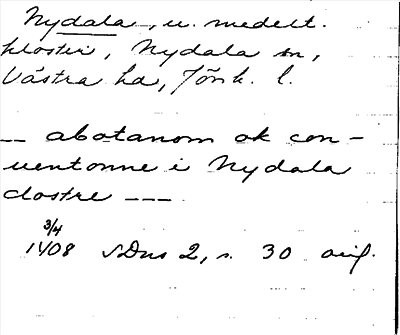 Nydala, u. medelt.
kloster, Nydala sn,
Västra hd, Jönk. l.
— abotanom ok con-
uentonne i Nydala
clostre ---
3/4
1408 SDns 2, s. 30 orig.